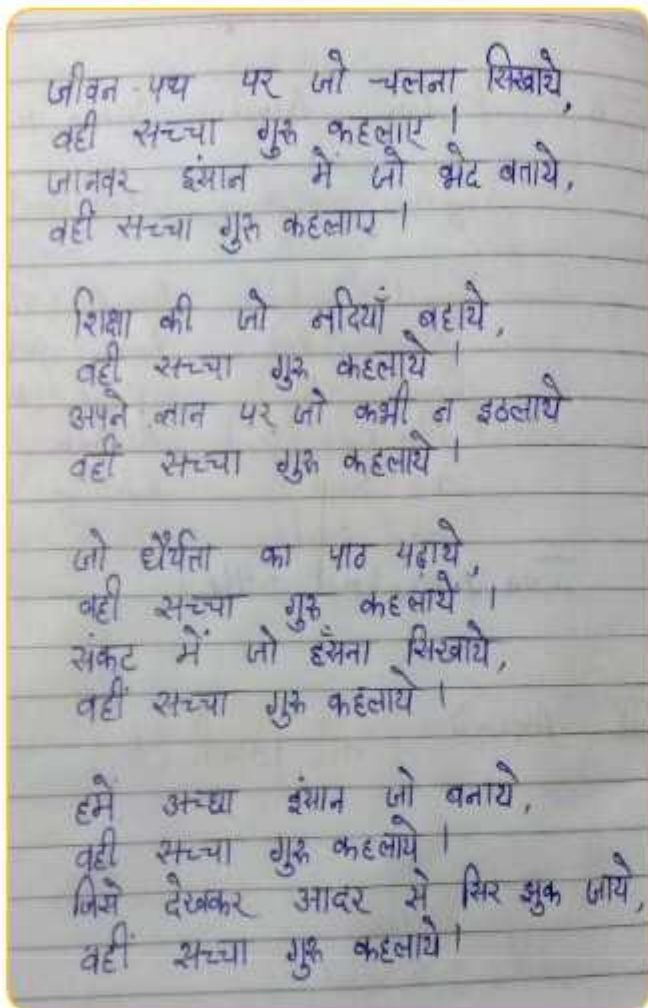 जीवन-पथ पर जो चलना सिखाये,
वही सच्चा गुरु कहलाए।
जानवर इंसान में जो भेद बताये,
वही सच्चा गुरु कहलाए।
शिक्षा की जो नदियाँ बहाये,
वही सच्चा गुरु कहलाये।
अपने ज्ञान पर जो कभी न इठलाये
वहीं सच्चा गुरु कहलाये।
जो धैर्यता का पाठ पढ़ाये,
वही सच्चा गुरु कहलाये।
संकट में जो हँसना सिखाये,
वहीं सच्चा गुरु कहलाये।
हमें अच्छा इंसान जो बनाये,
वही सच्चा गुरु कहलाये।
जिसे देखकर आदर से सिर झुक जाये,
वहीं सच्चा गुरु कहलाये।